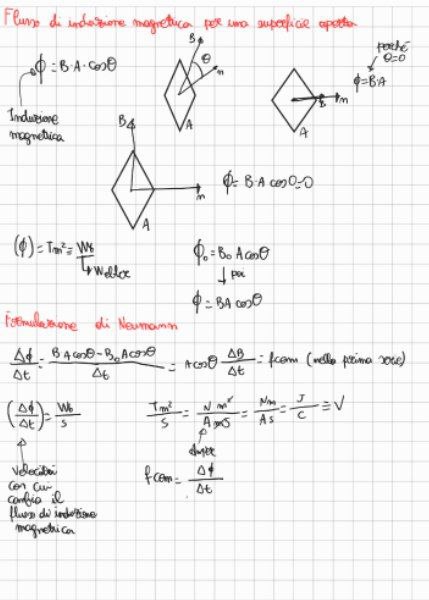 Flusso di induzione magnetica per una superficie aperta
ϕ = B·A·cosθ
Induzione
magnetica
B
θ
n
A
perché
θ=0
ϕ=BA
B
n
A
B
n
A
ϕ= B·A cosθ=0
(ϕ) = Tm² = Wb
Weber
ϕ₀ = B₀ A cosθ
poi
ϕ = BA cosθ
Formulazione di Neumann
Δϕ/Δt = (B A cosθ - B₀ A cosθ)/Δt = A cosθ ΔB/Δt = fcom (nella prima
(Δϕ/Δt) = Wb/S
Tm²/S = N m²/A m S = Nm/A s = J/C ≡ V
Amper
Velocità
con cui
cambia il
flusso di induzione
magnetica
fcom = Δϕ/Δt